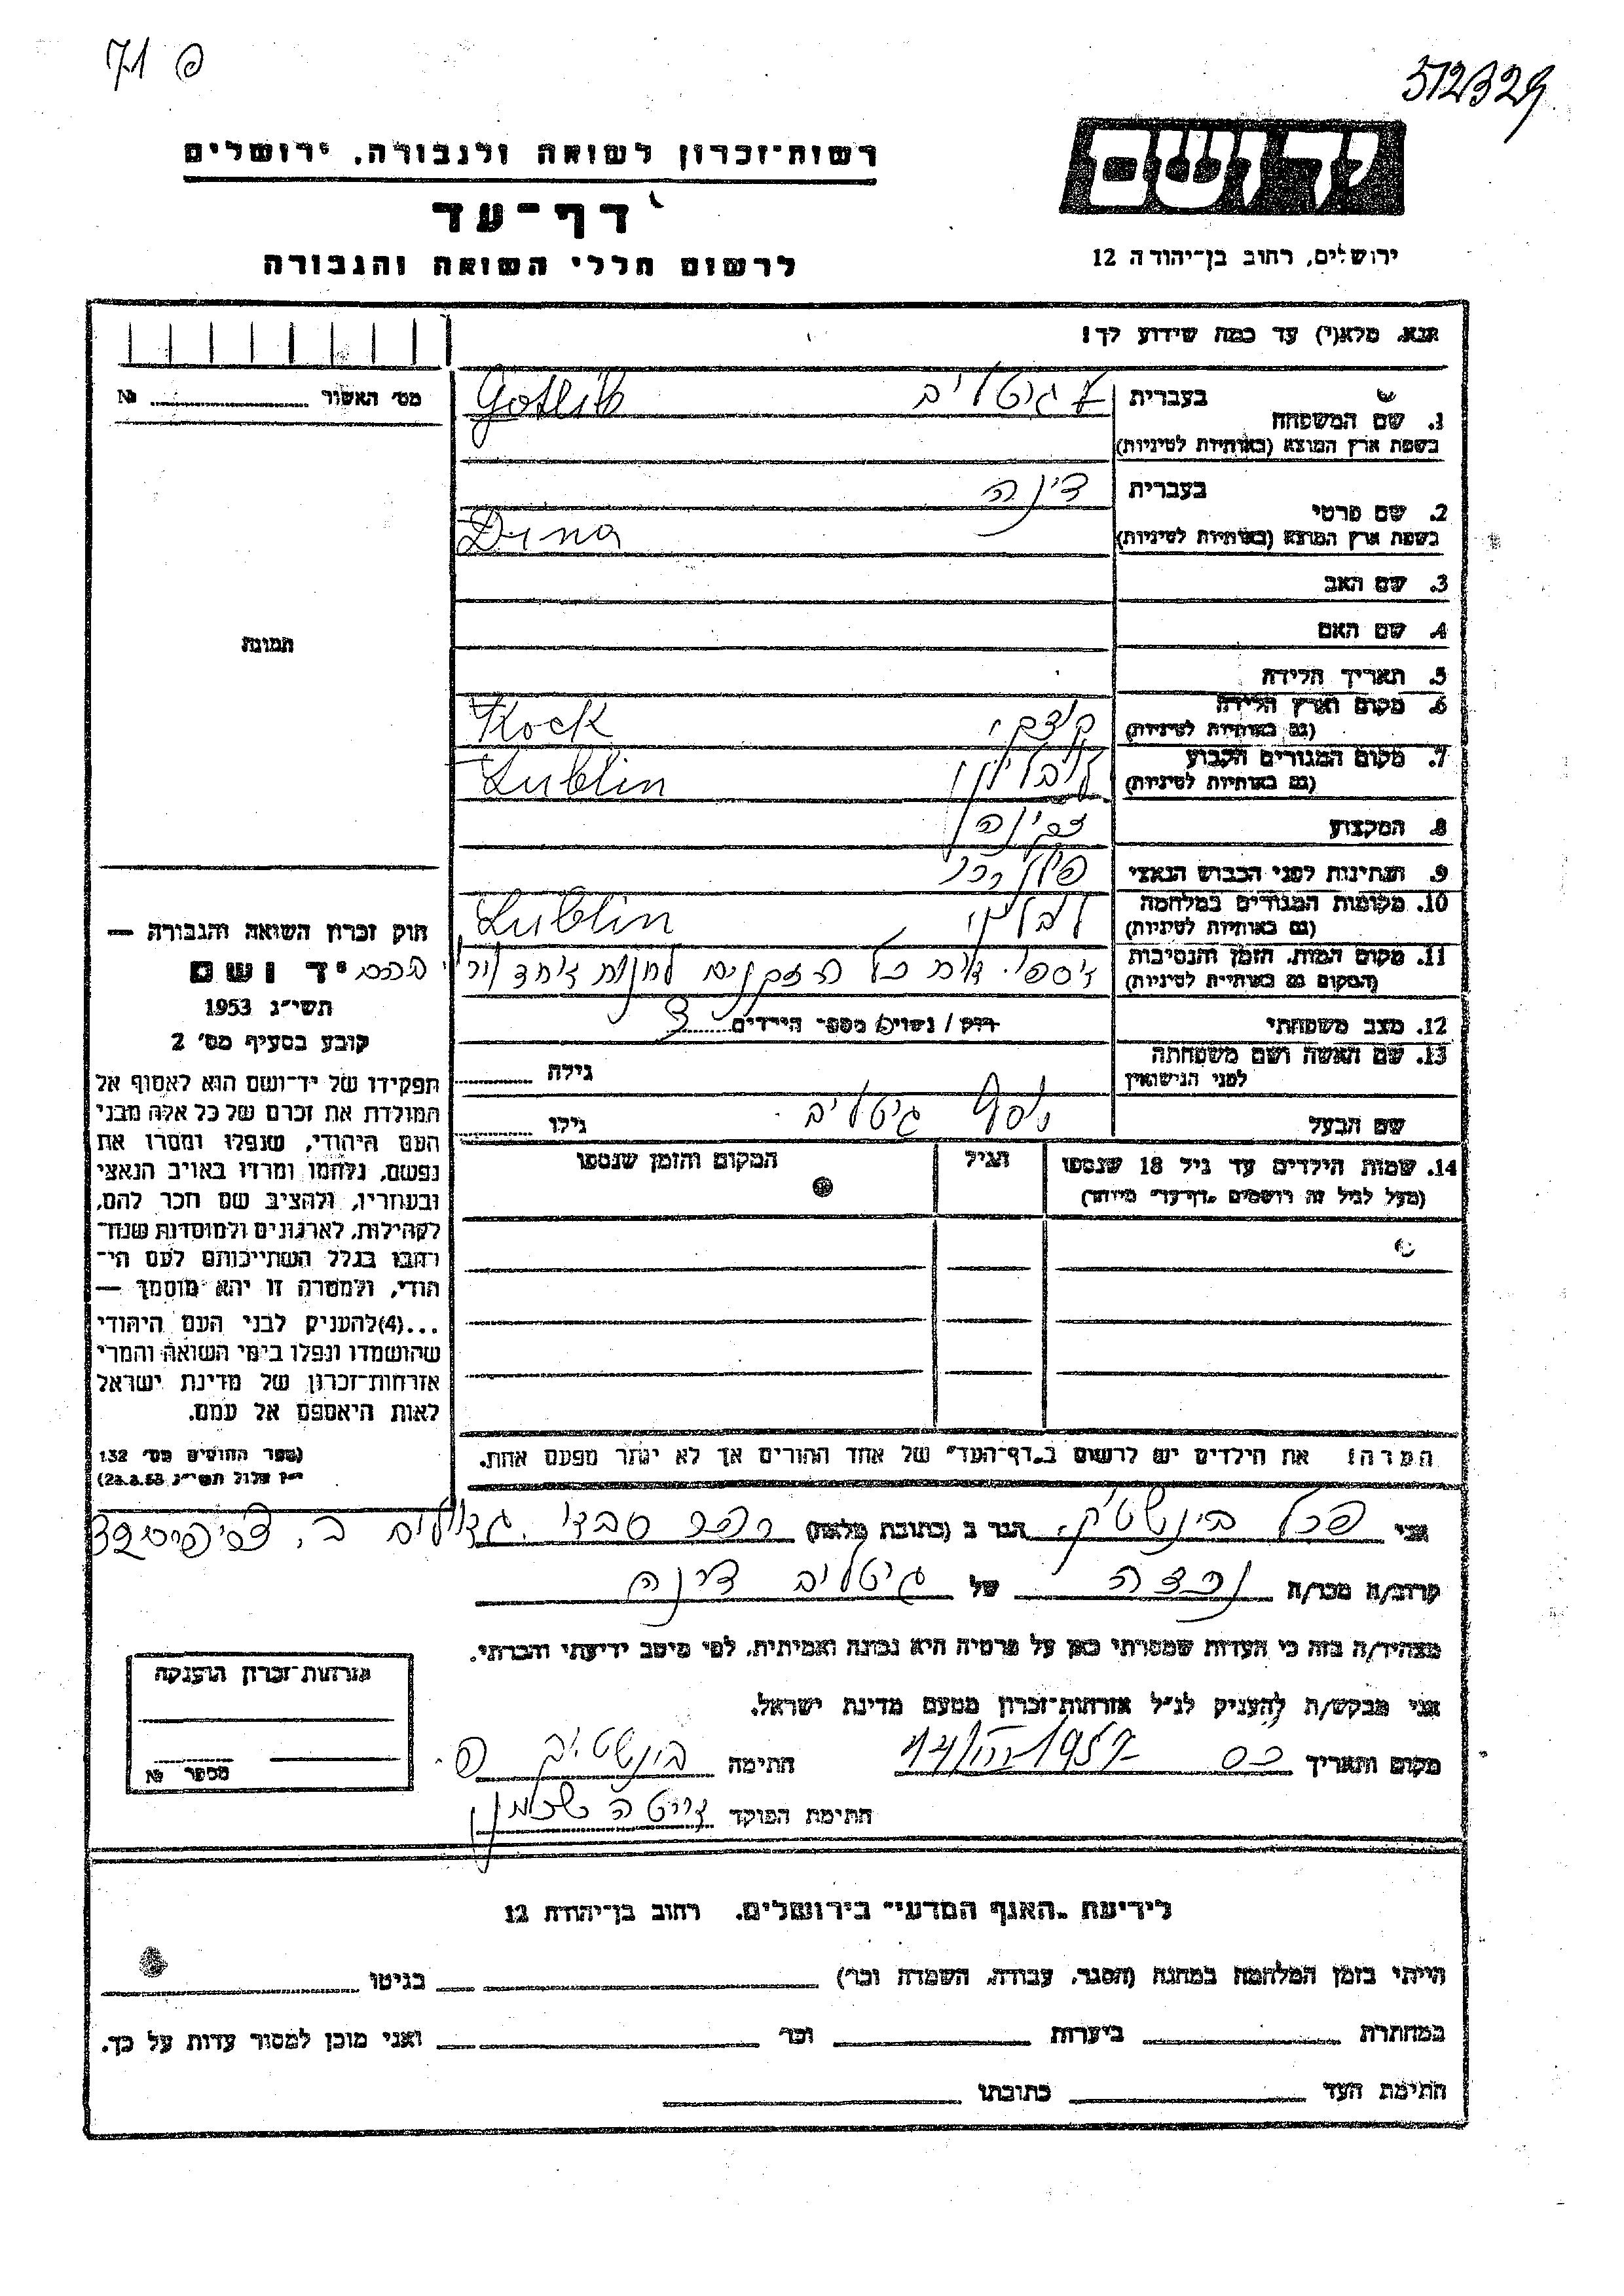 71 פ
512329
יד ושם
ירושלים, רחוב בן־יהודה 12
רשות־זכרון לשואה ולגבורה, ירושלים
דף־עד
לרשום חללי השואה והגבורה
אנא, מלא(י) עד כמה שידוע לך!
מס׳ האשור № 
1. שם המשפחה
בעברית גוטליב
בשפת ארץ המוצא (באותיות לטיניות) Gotlib
2. שם פרטי
בעברית דינה
בשפת ארץ המוצא (באותיות לטיניות) Dina
3. שם האב
4. שם האם
5. תאריך הלידה
6. מקום וארץ הלידה
(גם באותיות לטיניות) Kock
7. מקום המגורים הקבוע לובלין Lublin
(גם באותיות לטיניות)
8. המקצוע
9. הנתינות לפני הכבוש הנאצי
10. מקומות המגורים במלחמה לובלין Lublin
(גם באותיות לטיניות)
11. מקום המות, הזמן והנסיבות
(המקום גם באותיות לטיניות)
12. מצב משפחתי רווק / נשוי מספר הילדים 3
13. שם האשה ושם משפחתה
לפני הנישואין גילה
שם הבעל יוסף גוטליב גילו
14. שמות הילדים עד גיל 18 שנספו הגיל המקום והזמן שנספו
(מעל לגיל זה רושמים „דף־עד״ מיוחד)
תמונה
חוק זכרון השואה והגבורה —
יד ושם
תשי״ג 1953
קובע בסעיף מס׳ 2
תפקידו של יד־ושם הוא לאסוף אל
המולדת את זכרם של כל אלה מבני
העם היהודי, שנפלו ומסרו את
נפשם, נלחמו ומרדו באויב הנאצי
ובעוזריו, ולהציב שם וזכר להם,
לקהילות, לארגונים ולמוסדות שנח־
רבו בגלל השתייכותם לעם הי־
הודי, ולמטרה זו יהא מוסמך —
...(4)להעניק לבני העם היהודי
שהושמדו ונפלו בימי השואה והמרי
אזרחות־זכרון של מדינת ישראל
לאות היאספם אל עמם.
(ספר החוקים מס׳ 132
י״ז אלול תשי״ג 28.8.53)
הערה: את הילדים יש לרשום ב„דף־העד״ של אחד ההורים אך לא יותר מפעם אחת.
אני הגר ב (כתובת מלאה)
קרוב/ה מכר/ה נכדה של גוטליב דינה
מצהיר/ה בזה כי העדות שמסרתי כאן על פרטיה היא נכונה ואמיתית, לפי מיטב ידיעתי והכרתי.
אני מבקש/ת להעניק לנ״ל אזרחות־זכרון מטעם מדינת ישראל.
מקום ותאריך 1957 חתימה
חתימת הפוקד
אזרחות־זכרון הוענקה
מספר №
לידיעת „האגף המדעי״ בירושלים, רחוב בן־יהודה 12
הייתי בזמן המלחמה במחנה (הסגר, עבודה, השמדה וכו׳) בגיטו
במחתרת ביערות וכו׳ ואני מוכן למסור עדות על כך.
חתימת העד כתובתו